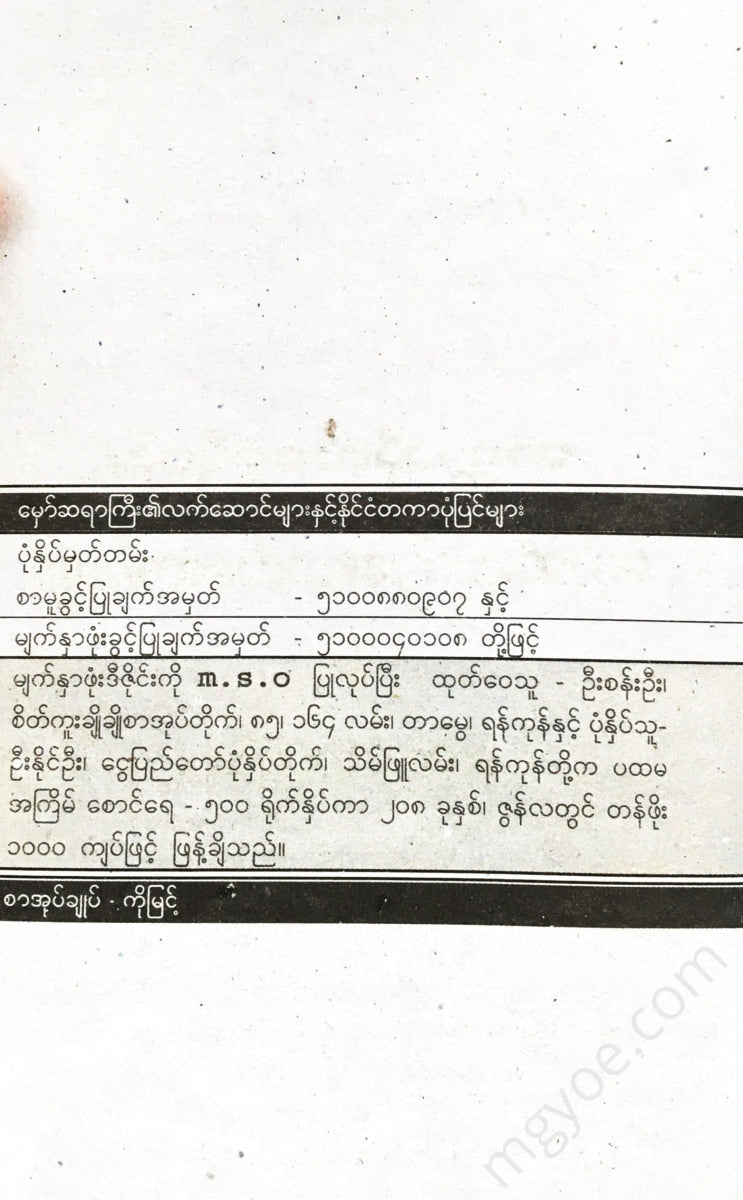 မှော်ဆရာကြီး၏လက်ဆောင်များနှင့်နိုင်ငံတကာပုံပြင်များ
ပုံနှိပ်မှတ်တမ်း
စာမူခွင့်ပြုချက်အမှတ် - ၅၁၀၀၈၈၀၉၀၇ နှင့်
မျက်နှာဖုံးခွင့်ပြုချက်အမှတ် - ၅၁၀၀၀၄၀၁၀၈ တို့ဖြင့်
မျက်နှာဖုံးဒီဇိုင်းကို m.s.o ပြုလုပ်ပြီး ထုတ်ဝေသူ - ဦးစန်းဦး၊
စိတ်ကူးချိုချိုစာအုပ်တိုက်၊ ၈၅၊ ၁၆၄ လမ်း၊ တာမွေ၊ ရန်ကုန်နှင့် ပုံနှိပ်သူ-
ဦးနိုင်ဦး၊ ငွေပြည်တော်ပုံနှိပ်တိုက်၊ သိမ်ဖြူလမ်း၊ ရန်ကုန်တို့က ပထမ
အကြိမ် စောင်ရေ - ၅၀၀ ရိုက်နှိပ်ကာ ၂၀၈ ခုနှစ်၊ ဇွန်လတွင် တန်ဖိုး
၁၀၀၀ ကျပ်ဖြင့် ဖြန့်ချိသည်။
စာအုပ်ချုပ် - ကိုမြင့်
mgyoe.com